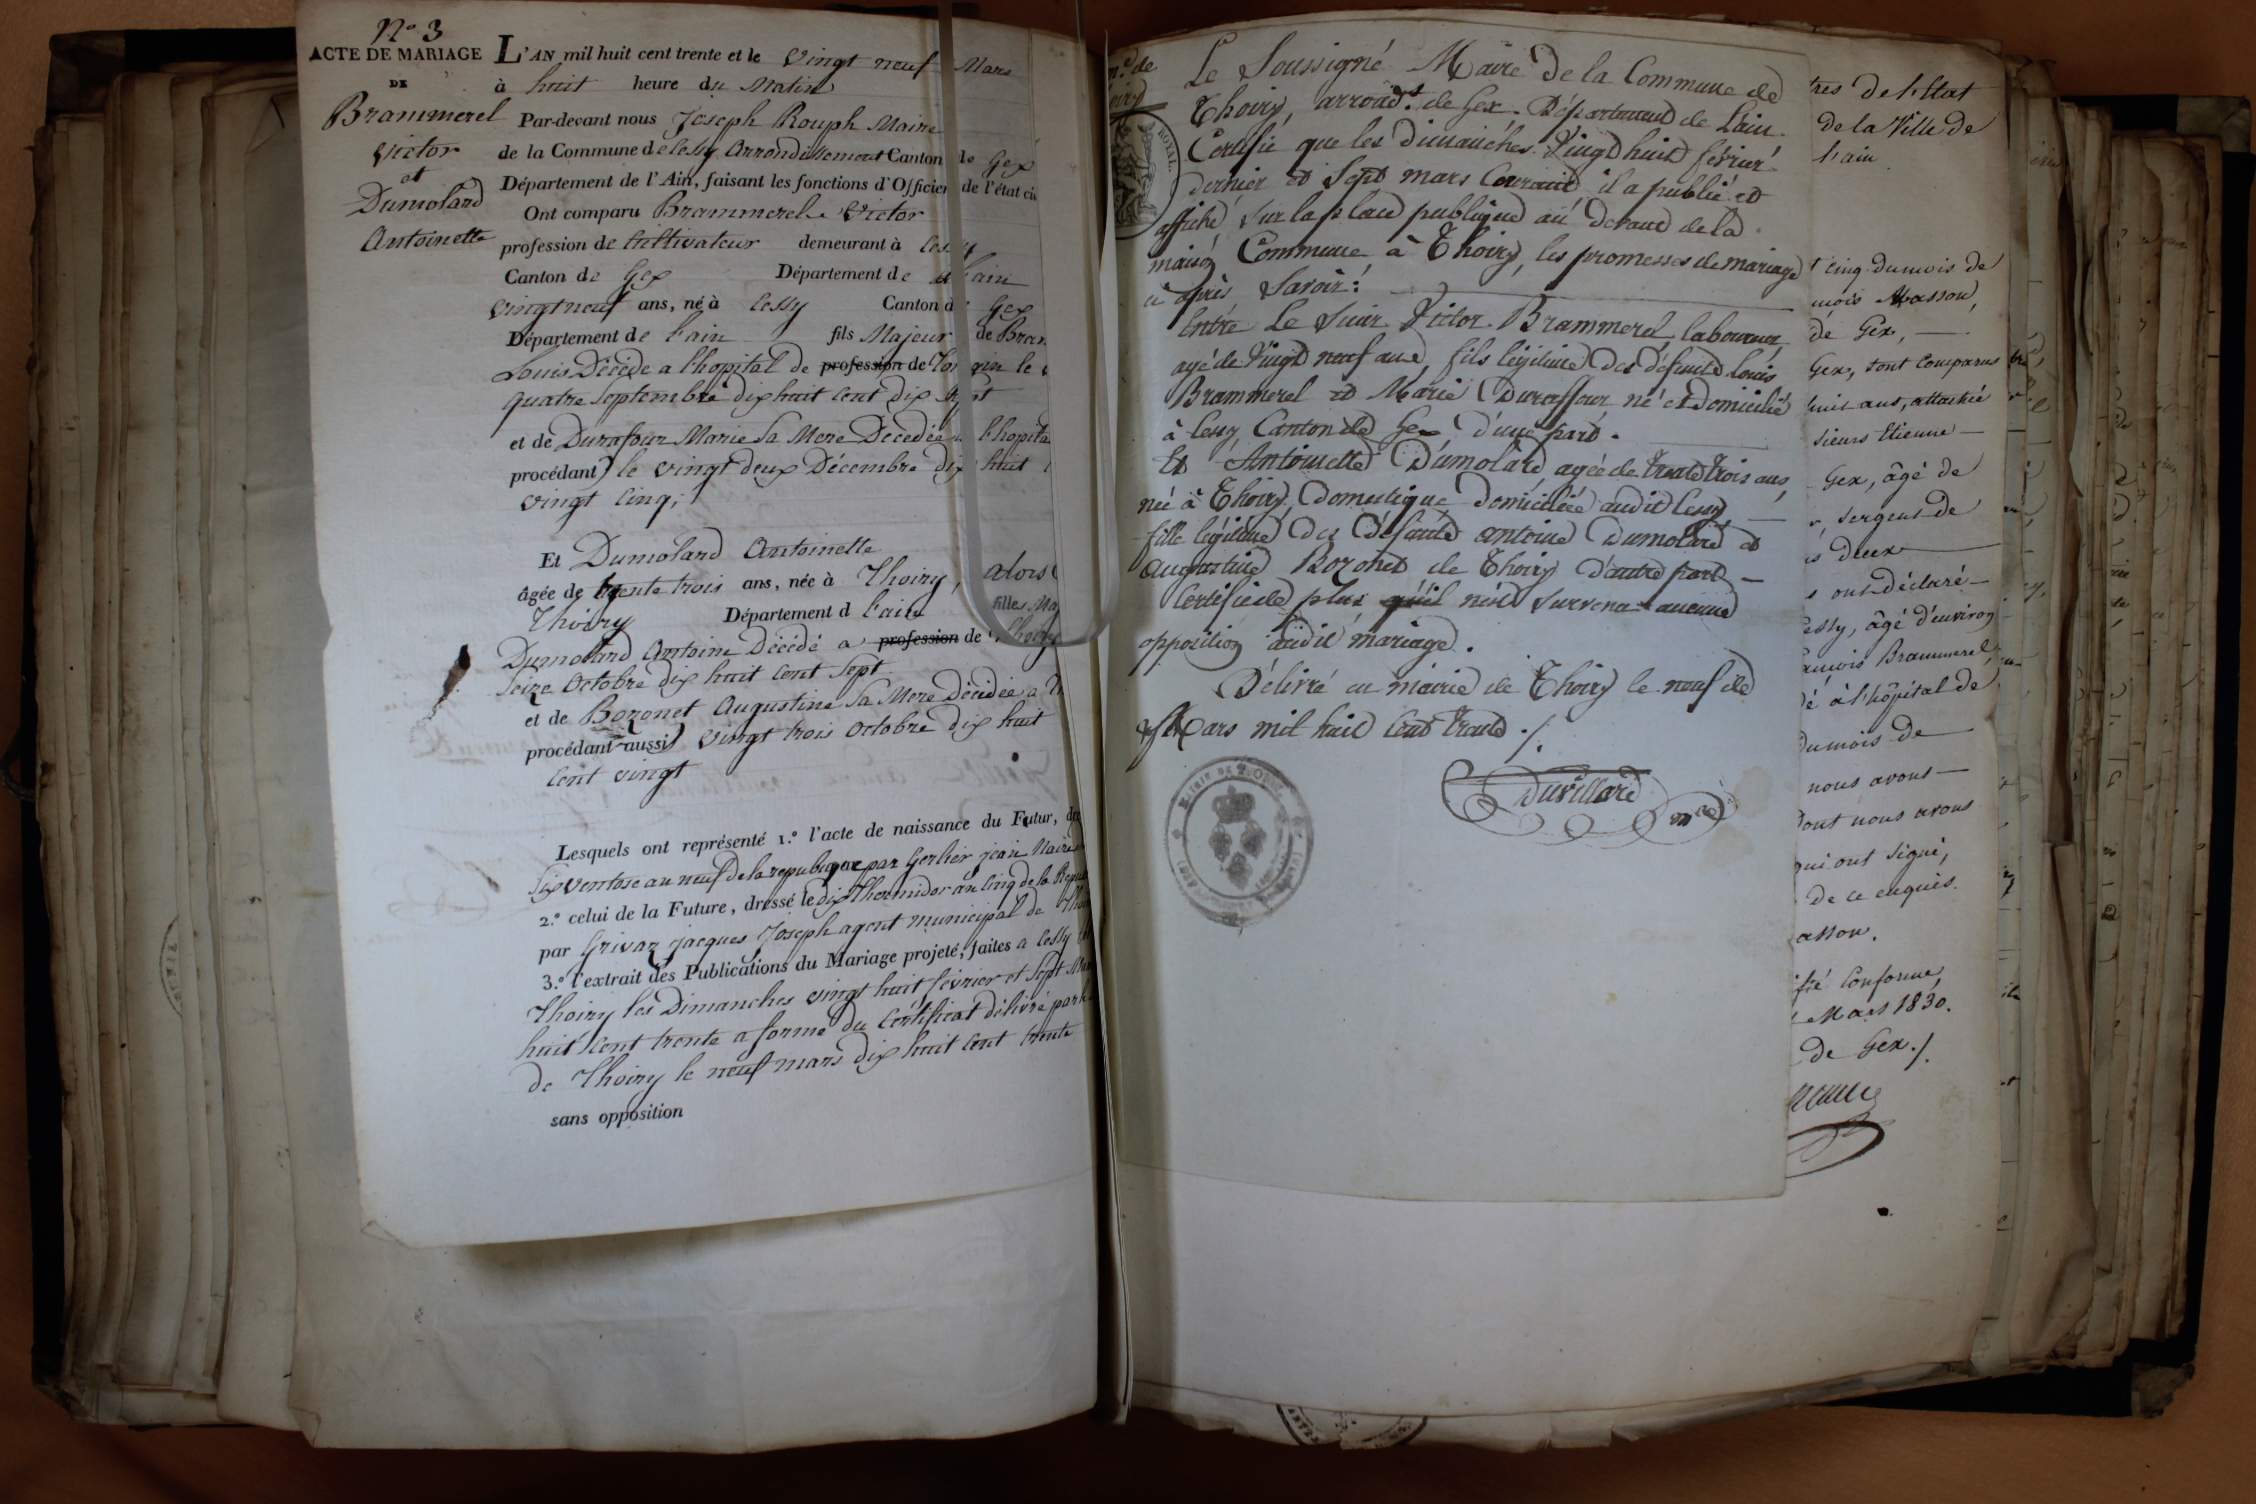 N.o 3
ACTE DE MARIAGE
DE
Brammerel
Victor
et
Dumolard
Antoinette
L'AN mil huit cent trente et le vingt neuf Mars
à huit heure du Matin
Par-devant nous Joseph Rouph Maire
de la Commune de Cessy Arrondissement Canton de Gex
Département de l'Ain, faisant les fonctions d'Officier de l'état ci
Ont comparu Brammerel Victor
profession de Cultivateur demeurant à Cessy
Canton de Gex Département de l'ain
vingt neuf ans, né à Cessy Canton de Gex
Département de l'ain fils Majeur de Bram
Louis Décédé a l'hopital de profession de le
quatre Septembre dix huit cent dix sept
et de Durafour Marie sa Mere Decedée a l'hopita
procédant le vingt deux Décembre dix huit
vingt cinq;
Et Dumolard Antoinette
âgée de trente trois ans, née à Thoiry, alors
Thoiry Département d l'ain filles Maj
Dumolard Antoine Décédé a profession de Thoiry
seize Octobre dix huit cent sept
et de Bozonet Augustine sa Mere Décédée a Th
procédant aussi vingt trois octobre dix huit
cent vingt
Lesquels ont représenté 1.o l'acte de naissance du Futur, dre
six ventose an neuf de la republique par Gerlier jean Maire
2.o celui de la Future, dressé le dix Thermidor an cinq de la Repu
par Grivaz jacques Joseph agent municipal de Thoi
3.o l'extrait des Publications du Mariage projeté, faites a Cessy
Thoiry les Dimanches vingt huit février et Sept Mar
huit cent trente a forme du Certificat délivré par le
de Thoiry le neuf mars dix huit cent trente
sans opposition
m.e de
ROYAL
Le Soussigné Maire de la Commune de
Thoiry, arrond.t de Gex. Département de L'ain.
Certifie que les dimanches Vingt huit février
dernier et Sept mars Courant il a publié et
affiché sur la place publique au devant de la
maison Commune à Thoiry, les promesses de mariage
ci après Savoir:
Entre Le sieur Victor Brammerel laboureur
agé de Vingt neuf ans, fils légitime des défunts Louis
Brammerel et Marie Duraffour né et domicilié
à Cessy Canton de Gex d'une part.
Et Antoinette Dumolard, agée de trente trois ans,
née à Thoiry, domestique domiciliée audit Cessy
fille légitime des défunts antoine Dumolard et
augustine Bozonet de Thoiry d'autre part
Certifie de plus qu'il n'est survenu aucune
opposition audit mariage.
Délivré en mairie de Thoiry le neuf de
Mars mil huit Cent Trente ./.
Duvillard
MAIRIE DE THOIRY
tres de l'Etat
de la Ville de
l'ain
t cinq du mois de
mois Masson,
de Gex,
Gex, sont Comparus
huit ans, attaché
sieurs Etienne
Gex, âgé de
sergent de
s deux
s ont déclaré
essy, âgé d'environ
ançois Brammerel
é à l'hôpital de
du mois de
nous avons
dont nous avons
qui ont signé,
de ce enquis.
asson.
fié Conforme,
Mars 1830.
de Gex ./.